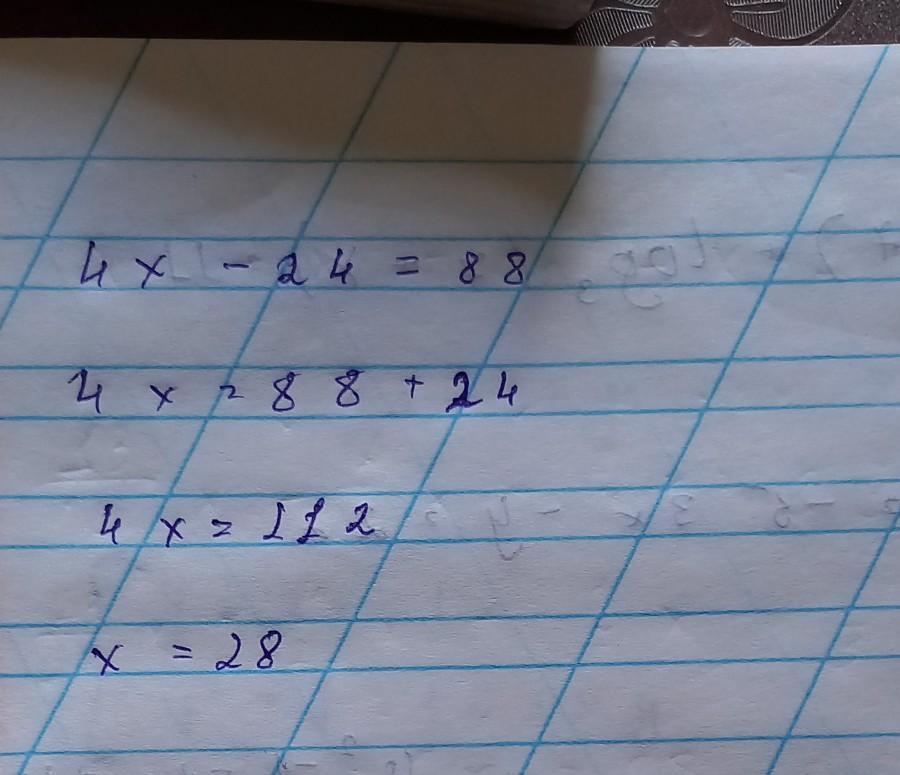 4x - 24 = 88
4x = 88 + 24
4x = 112
x = 28